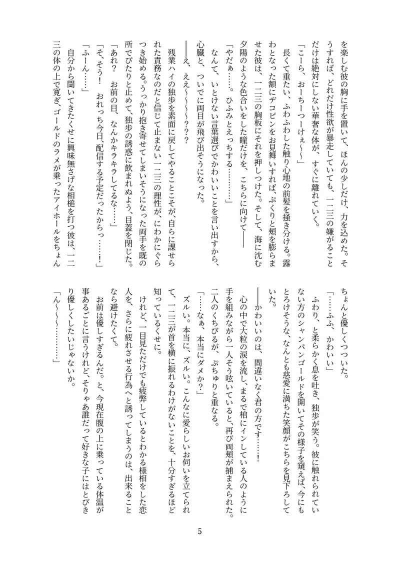 を楽しむ彼の胸に手を置いて、ほんの少しだけ、力を込めた。そ
うすれば、どれだけ性欲が暴走していても、一二三の嫌がること
だけは絶対にしない華奢な体が、すぐに離れていく。
「こーら、おーちーつーけぇ～！」
　長くて重たい、ふわふわした触り心地の前髪を掻き分ける。露
わとなった額にデコピンをお見舞いすれば、ぷくりと頬を膨らま
せた彼は、一二三の胸板にそれを押しつけた。そして、海に沈む
夕陽のような色合いをした瞳だけを、こちらに向けて――
「やだぁ……。ひふみとえっちする……」
　なんて、いとけない言葉選びでかわいいことを言い出すから、
心臓と、ついでに両目が飛び出そうになった。
　――え、ええ～～～～？？？
　残業ハイの独歩を素面に戻してやることこそが、自らに課せら
れた責務なのだと信じて止まない一二三の理性が、にわかにぐら
つき始める。うっかり抱き潰してしまいそうになった両手を既の
所でぴたりと止めて、独歩の誘惑に飲まれぬよう、目蓋を閉じた。
「あれ？　お前の目、なんかキラキラしてるな……」
「そ、そう！　おれっち今日、配信する予定だったからっ……！」
「ふーん……」
　自分から聞いてきたくせに興味無さげな相槌を打つ彼は、一二
三の体の上で寛ぎ、ゴールドのラメが乗ったアイホールをちょん
ちょんと優しくつついた。
「……ふふ、かわいい」
　ふわり、と柔らかく息を吐き、独歩が笑う。彼に触れられてい
ない方のシャンパンゴールドを開いてその様子を窺えば、今にも
とろけそうな、なんとも慈愛に満ちた笑顔がこちらを見下ろして
いた。
　――かわいいのは、間違いなく君の方です……！
　心の中で大粒の涙を流し、まるで棺にインしている人のように
手を組みながら一人そう呟いていると、再び両頬が捕まえられた。
二人のくちびるが、ぷちゅりと重なる。
「……なぁ、本当にダメか？」
　ズルい。本当に、ズルい。こんなに愛らしいお伺いを立てられ
て、一二三が首を横に振れるわけがないことを、十分すぎるほど
知っているくせに。
　けれど、一目見ただけでも疲弊しているとわかる様相をした恋
人を、さらに疲れさせる行為へと誘ってしまうのは、出来ること
なら避けたくて。
　お前は優しすぎるんだ。と、今現在腹の上に乗っている体温が
事あるごとに言うけれど、そりゃあ誰だって好きな子にはとびき
り優しくしたいじゃないか。
「ん～～～～……」
5